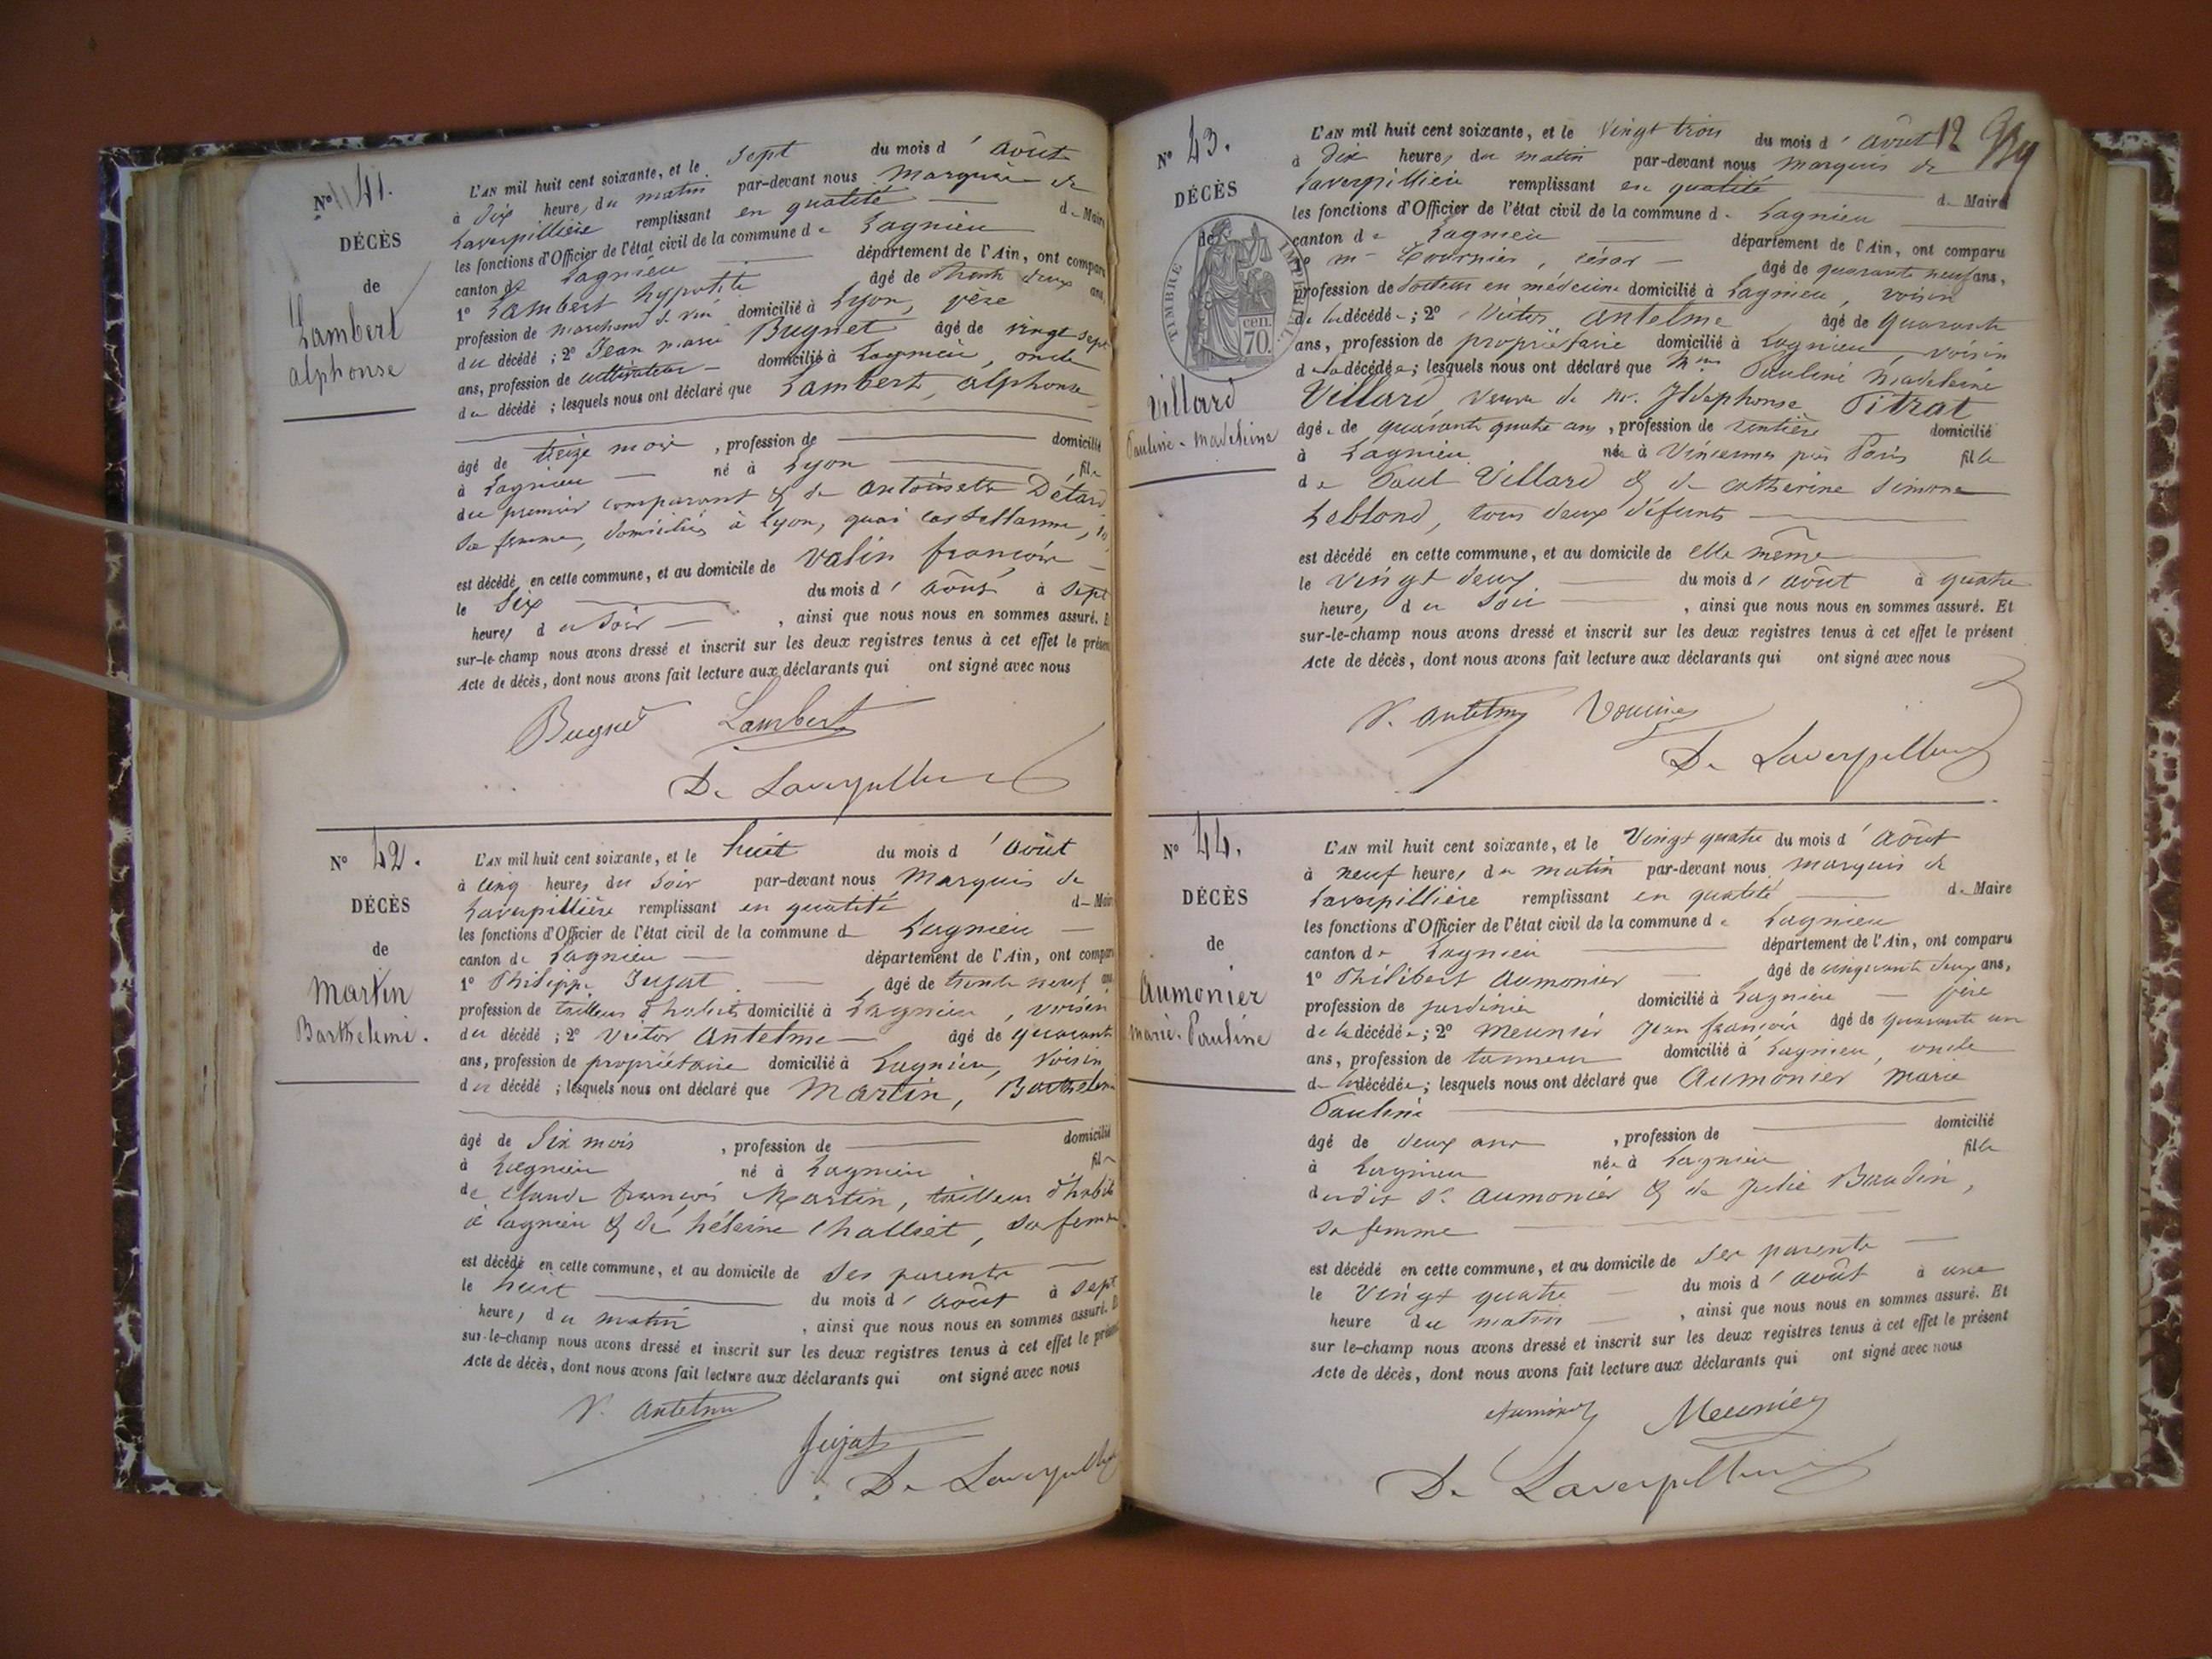 N° 41.
DÉCÈS
de
Lambert
alphonse
L'AN mil huit cent soixante, et le sept du mois d'Août
à dix heures du matin par-devant nous Marquis de
Laverpillière remplissant en qualité de Maire
les fonctions d'Officier de l'état civil de la commune de Lagnieu
canton de Lagnieu département de l'Ain, ont comparu
1° Lambert hypolite âgé de trente deux ans
profession de marchand de vin domicilié à Lyon, père
du décédé ; 2° Jean marie Bugnet âgé de vingt sept
ans, profession de cultivateur domicilié à Lagnieu, oncle
du décédé ; lesquels nous ont déclaré que Lambert, alphonse
âgé de treize mois, profession de domicilié
à Lagnieu né à Lyon fils
du premier comparant & de antoinette Détard
sa femme, domiciliés à Lyon, quai castellanne,
est décédé en cette commune, et au domicile de Valin françois
le six du mois d'août à sept
heures du soir, ainsi que nous nous en sommes assuré. Et
sur-le-champ nous avons dressé et inscrit sur les deux registres tenus à cet effet le présent
Acte de décès, dont nous avons fait lecture aux déclarants qui ont signé avec nous
Bugnet Lambert
De Laverpillière
N° 42.
DÉCÈS
de
Martin
Barthelemi.
L'AN mil huit cent soixante, et le huit du mois d'Août
à cinq heures du soir par-devant nous Marquis de
Laverpillière remplissant en qualité de Maire
les fonctions d'Officier de l'état civil de la commune d Lagnieu
canton de Lagnieu département de l'Ain, ont comparu
1° Philippe Jujat âgé de trente neuf ans
profession de tailleur d'habits domicilié à Lagnieu, voisin
du décédé ; 2° Victor Antelme âgé de quarante
ans, profession de propriétaire domicilié à Lagnieu, voisin
du décédé ; lesquels nous ont déclaré que Martin, Barthelemi
âgé de six mois, profession de domicilié
à Lagnieu né à Lagnieu fils
de Claude françois Martin, tailleur d'habits
à Lagnieu & de héleine Challiet, sa femme
est décédé en cette commune, et au domicile de ses parents
le huit du mois d'août à sept
heures du matin, ainsi que nous nous en sommes assuré. Et
sur-le-champ nous avons dressé et inscrit sur les deux registres tenus à cet effet le présent
Acte de décès, dont nous avons fait lecture aux déclarants qui ont signé avec nous
V. Antelme
Jujat
De Laverpillière
12
N° 43.
DÉCÈS
de
TIMBRE IMPERIAL
70. cen.
Villard
Pauline-Madeleine
L'AN mil huit cent soixante, et le vingt trois du mois d'août
à dix heures du matin par-devant nous marquis de
Laverpillière remplissant en qualité de Maire
les fonctions d'Officier de l'état civil de la commune de Lagnieu
canton de Lagnieu département de l'Ain, ont comparu
1° mr césar âgé de quarante neuf ans,
profession de docteur en médecine domicilié à Lagnieu, voisin
de la décédée ; 2° Victor Antelme âgé de quarante
ans, profession de propriétaire domicilié à Lagnieu, voisin
de la décédée ; lesquels nous ont déclaré que Mme Pauline Madeleine
Villard veuve de Mr. Ildephonse Pitrat
âgée de quarante quatre ans, profession de rentière domicilié
à Lagnieu née à Vincennes près Paris fille
de Paul Villard & de catherine Simone
Leblond, tous deux défunts
est décédé en cette commune, et au domicile de elle même
le vingt deux du mois d'août à quatre
heures du soir, ainsi que nous nous en sommes assuré. Et
sur-le-champ nous avons dressé et inscrit sur les deux registres tenus à cet effet le présent
Acte de décès, dont nous avons fait lecture aux déclarants qui ont signé avec nous
V. Antelme
De Laverpillière
N° 44.
DÉCÈS
de
Aumonier
Marie-Pauline
L'AN mil huit cent soixante, et le vingt quatre du mois d'Août
à neuf heures du matin par-devant nous marquis de
Laverpillière remplissant en qualité de Maire
les fonctions d'Officier de l'état civil de la commune de Lagnieu
canton de Lagnieu département de l'Ain, ont comparu
1° Philibert Aumonier âgé de cinquante deux ans,
profession de jardinier domicilié à Lagnieu père
de la décédée ; 2° Meunier Jean françois âgé de quarante un
ans, profession de tanneur domicilié à Lagnieu, oncle
de la décédée ; lesquels nous ont déclaré que Aumonier Marie
Pauline
âgé de deux ans, profession de domicilié
à Lagnieu née à Lagnieu fille
dudit Sr. Aumonier & de Julie Baudin,
sa femme
est décédé en cette commune, et au domicile de ses parents
le vingt quatre du mois d'août à une
heure du matin, ainsi que nous nous en sommes assuré. Et
sur le-champ nous avons dressé et inscrit sur les deux registres tenus à cet effet le présent
Acte de décès, dont nous avons fait lecture aux déclarants qui ont signé avec nous
Aumonier Meunier
De Laverpillière